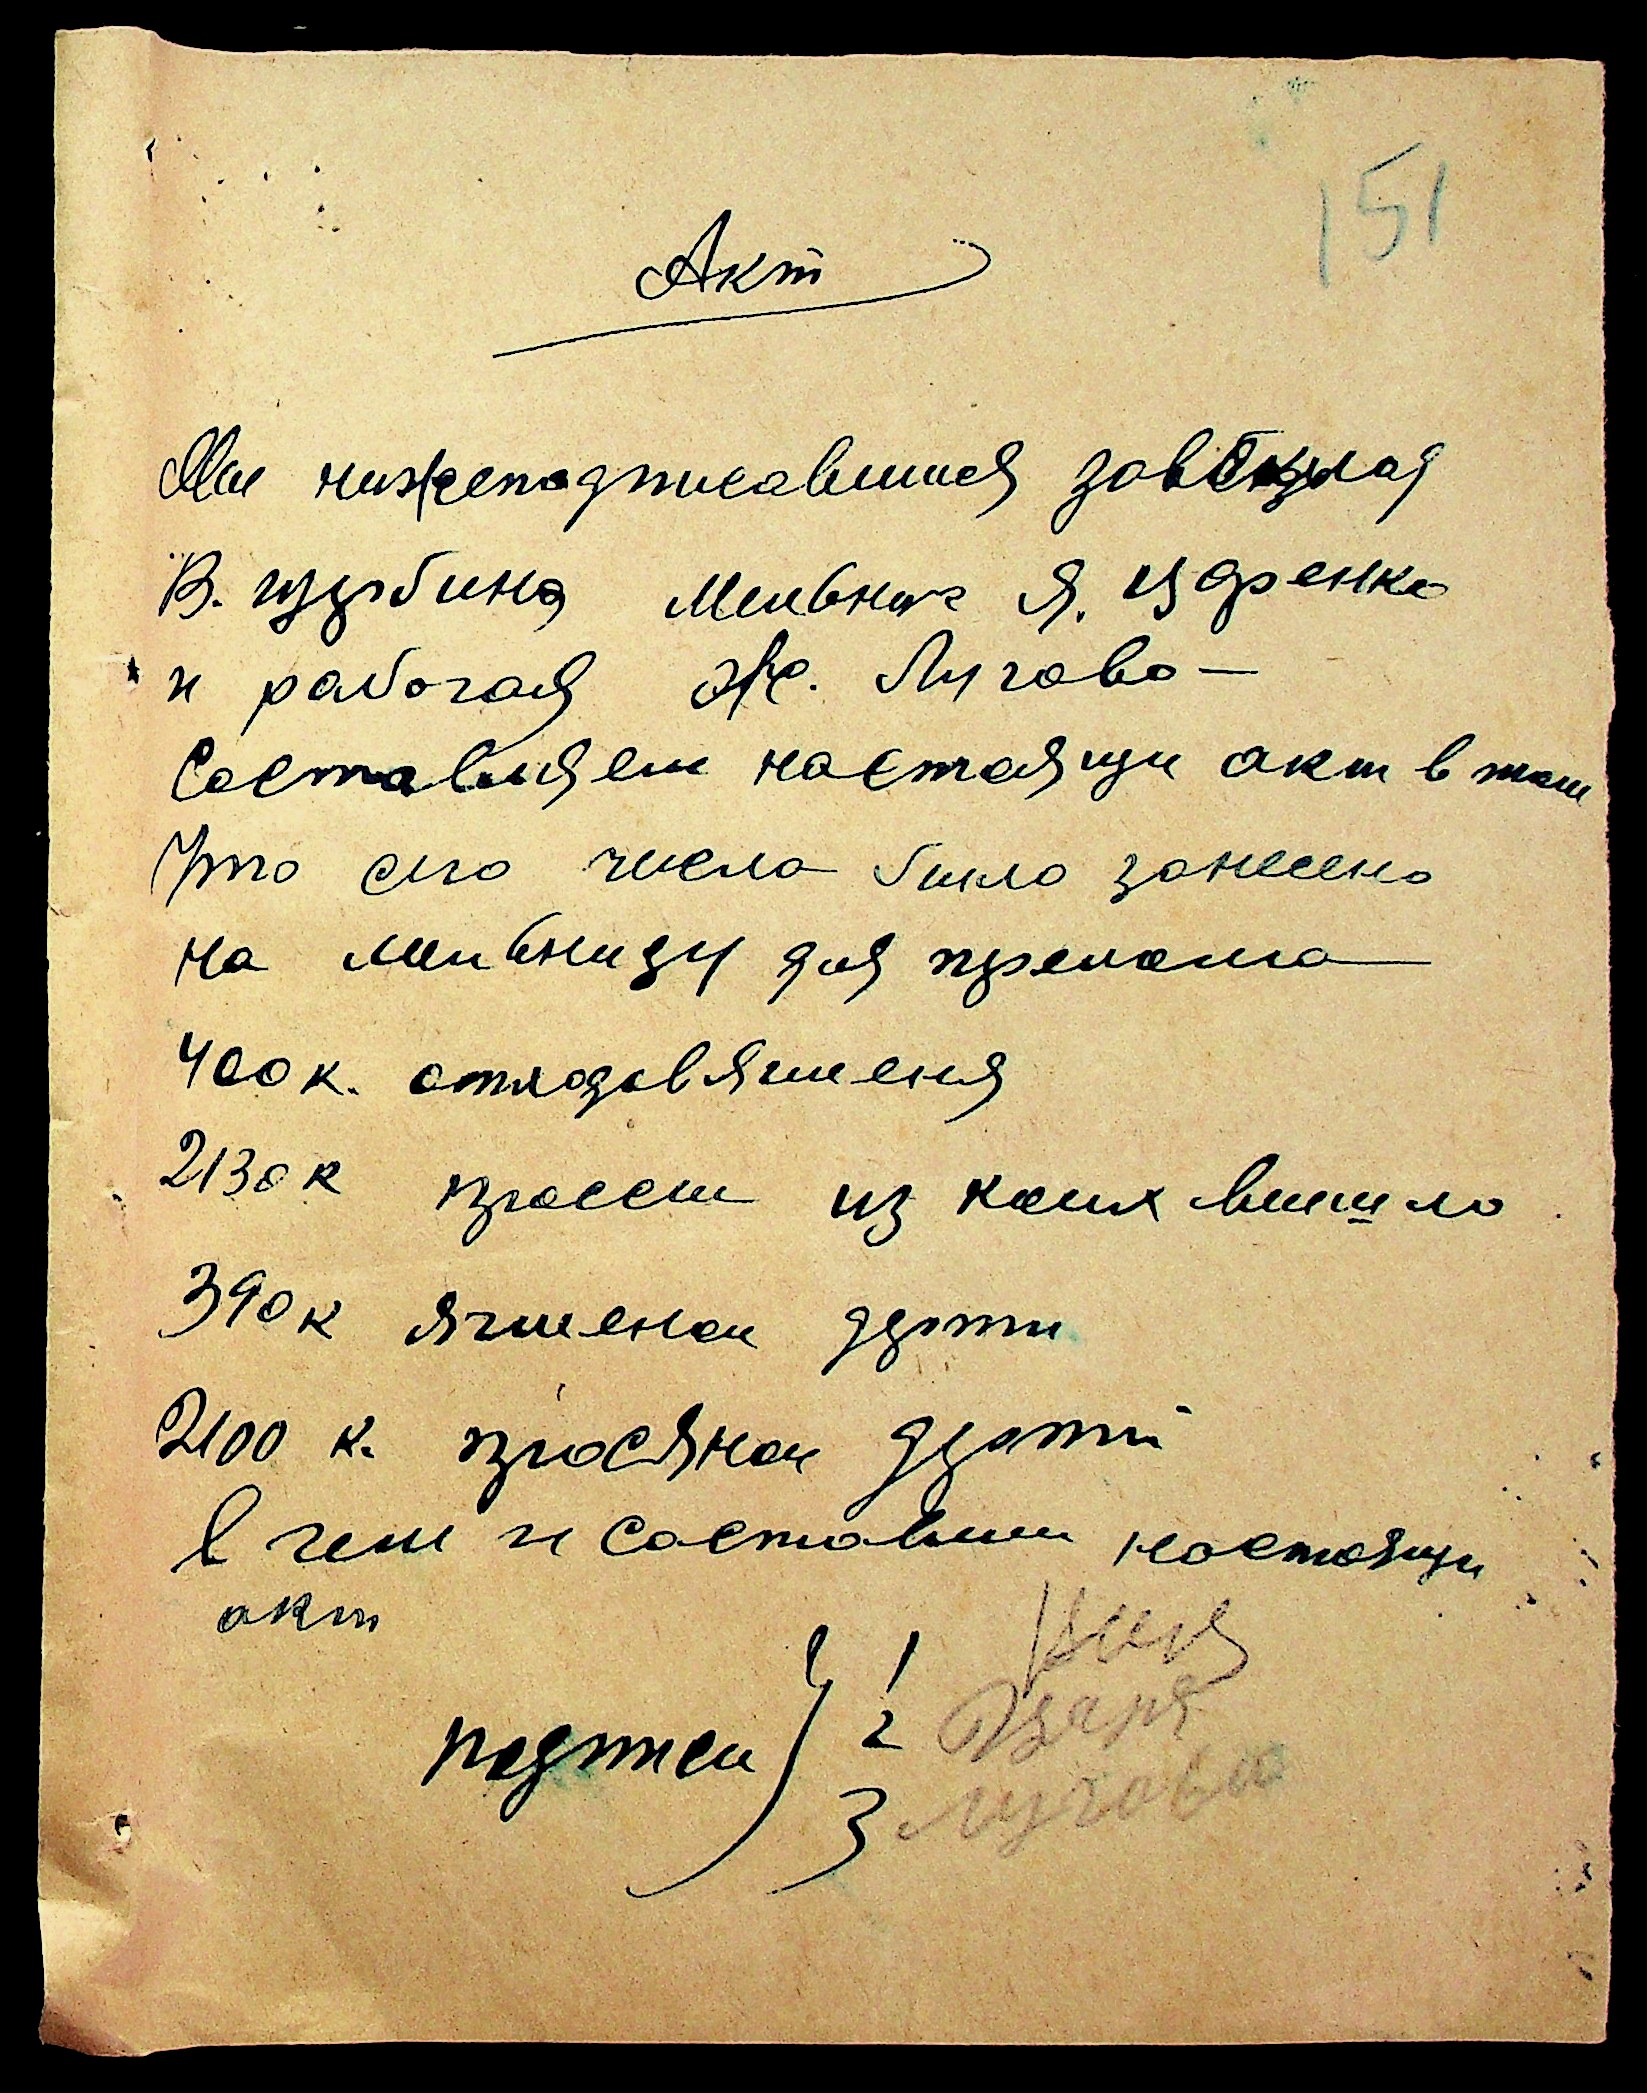 151
Акт
Мы нижеподписавшися завсклад
В. мельник Я. Царенко
и рабочая Ж. Лугово
составляем настоящи акт в том
Что сего числа было занесено
на мельницу для премола
400 к. отходов ячменя
2130 к просси из коих вышло
390 к ячменои дерти
2100 к. просяной дерти
в чем и составили настоящи
акт
подписи } 1
2 Царя
3 Лугова